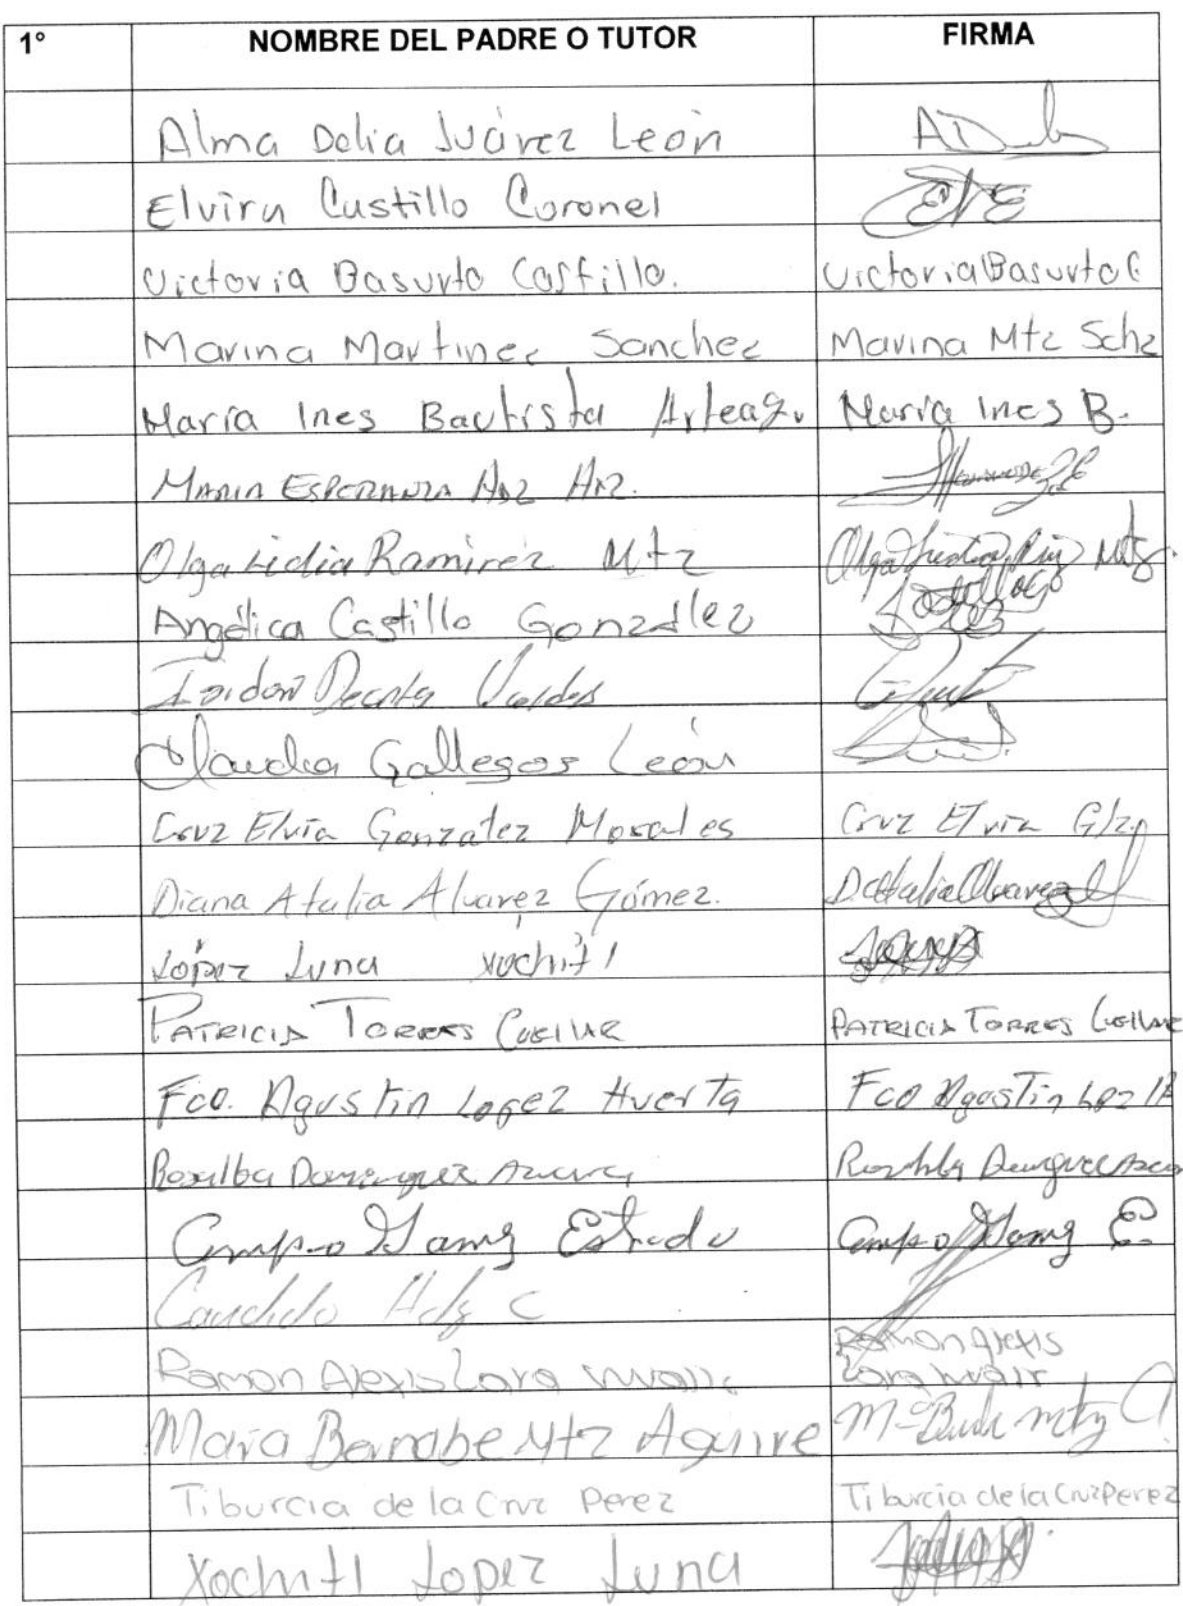 1° NOMBRE DEL PADRE O TUTOR FIRMA
Alma Delia Juárez León AD
Elvira Castillo Coronel
Victoria Basurto Castillo. Victoria Basurto C
Marina Martinez Sanchez Marina Mtz Schz
María Ines Bautista Arteaga María Ines B.
MARIA ESPERANZA HDZ HDZ.
Olga Lidia Ramirez Mtz Olga Lidia Mtz.
Angélica Castillo González
Valdes
Claudia Gallegos León
Cruz Elvia Gonzalez Morales Cruz Elvia Glz.
Diana Atalia Alvarez Gómez. D. Atalia Alvarez
López Luna Xochitl
PATRICIA TORRES CUELLAR PATRICIA TORRES CUELLAR
Fco. Agustin Lopez Huerta Fco Agustin Lpz H
Rosalba Dominguez
Estrada E.
Candido Hdz C
Ramon Alexis Lara Ramon Alexis
Lara
Maria Bernabe Mtz Aguirre Mª Mtz A
Tiburcia de la Cruz Perez Tiburcia de la Cruz Perez
Xochitl Lopez Luna